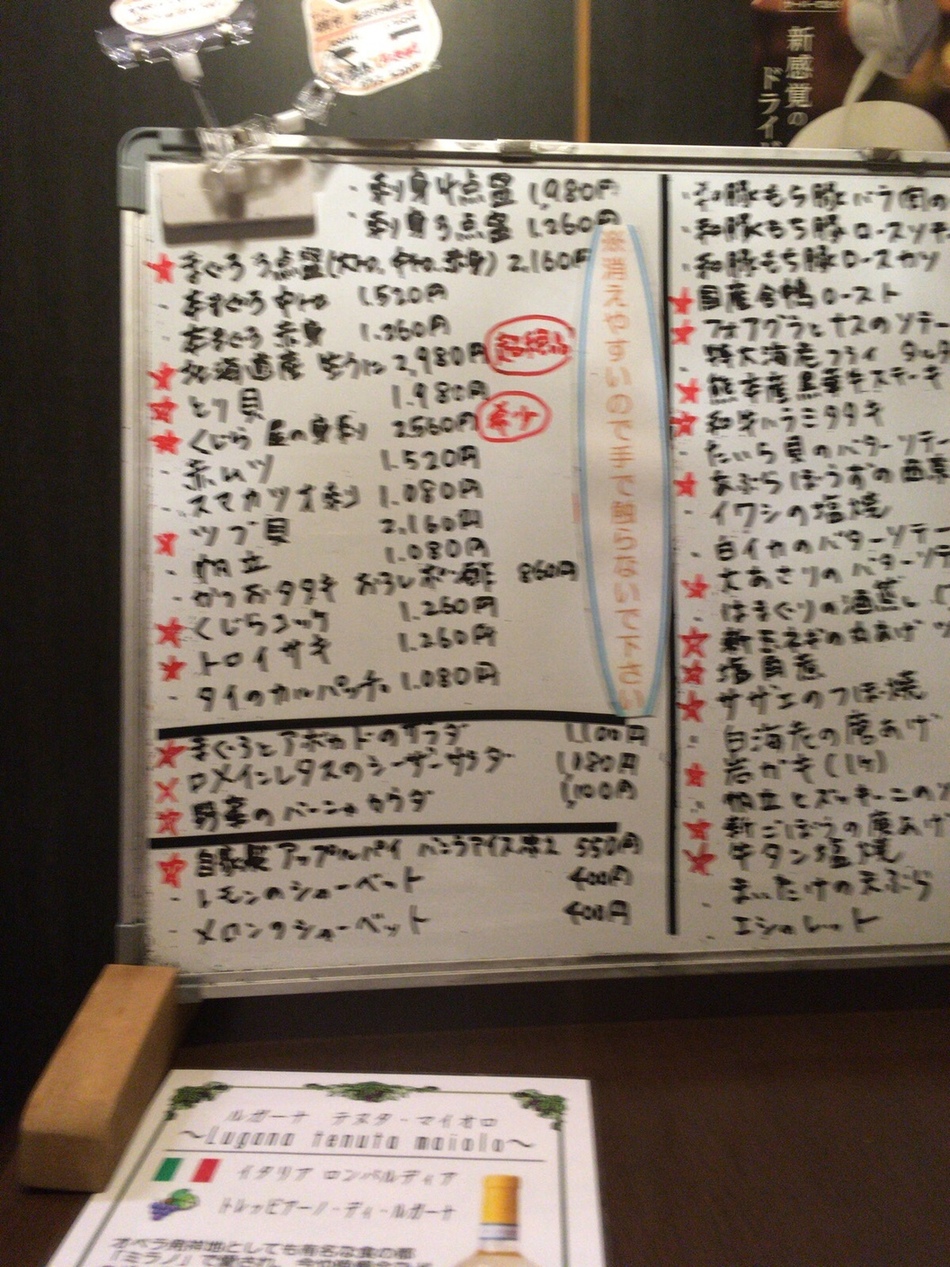 新感覚の
ドライ
・刺身4点盛 1,980円
・刺身3点盛 1.260円
★まぐろ3点盛(大トロ,中トロ,赤身) 2,160円
・本まぐろ 中トロ 1.520円
・本まぐろ 赤身 1.260円
★北海道産 生うに 2,980円
★とり貝 1.980円
★くじら 尾の身刺 2560円 希少
・赤ムツ 1.520円
・スマカツオ刺 1.080円
★ツブ貝 2.160円
・帆立 1.080円
・かつおタタキ おろしポン酢 860円
★くじらユッケ 1.260円
★トロイサキ 1.260円
・タイのカルパッチョ 1.080円
★まぐろとアボカドのサラダ 1,100円
ロメインレタスのシーザーサラダ 1,180円
★野菜のバーニャカウダ 1,100円
★自家製 アップルパイ バニラアイス添え 550円
・レモンのシャーベット 400円
・メロンのシャーベット 400円
消えやすいので手で触らないで下さい
・和豚もち豚バラ肉の
・和豚もち豚 ロースソテー
・和豚もち豚ロースカツ
★国産合鴨ロースト
★フォアグラとナスのソテー
特大海老フライ タルタ
★熊本産黒華牛ステーキ
★和牛ハラミタタキ
・たいら貝のバターソテー
★あぶらぼうずの西京
・イワシの塩焼
・白イカのバターソテー
★大あさりのバターソテ
・はまぐりの酒蒸し
★新玉ネギの丸あげ
★塩角煮
★サザエのつぼ焼
・白海老の唐あげ
★岩ガキ(1ヶ)
・帆立とズッキーニのソ
★新ごぼうの唐あげ
★牛タン塩焼
・まいたけの天ぷら
エシャレット
ルガーナ テヌタ・マイオロ
～Lugana tenuta maiolo～
イタリア ロンバルディア
トレッビアーノ・ディ・ルガーナ
オペラ発祥地としても有名な食の都
「ミラノ」で愛され、